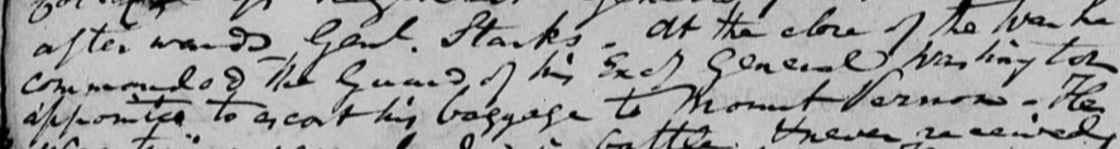 afterwards Genl. Starks - At the close of the War he
commanded the Guard of his Excy General Washington
appointed to escort his baggage to Mount Vernon - He
battle. & never received